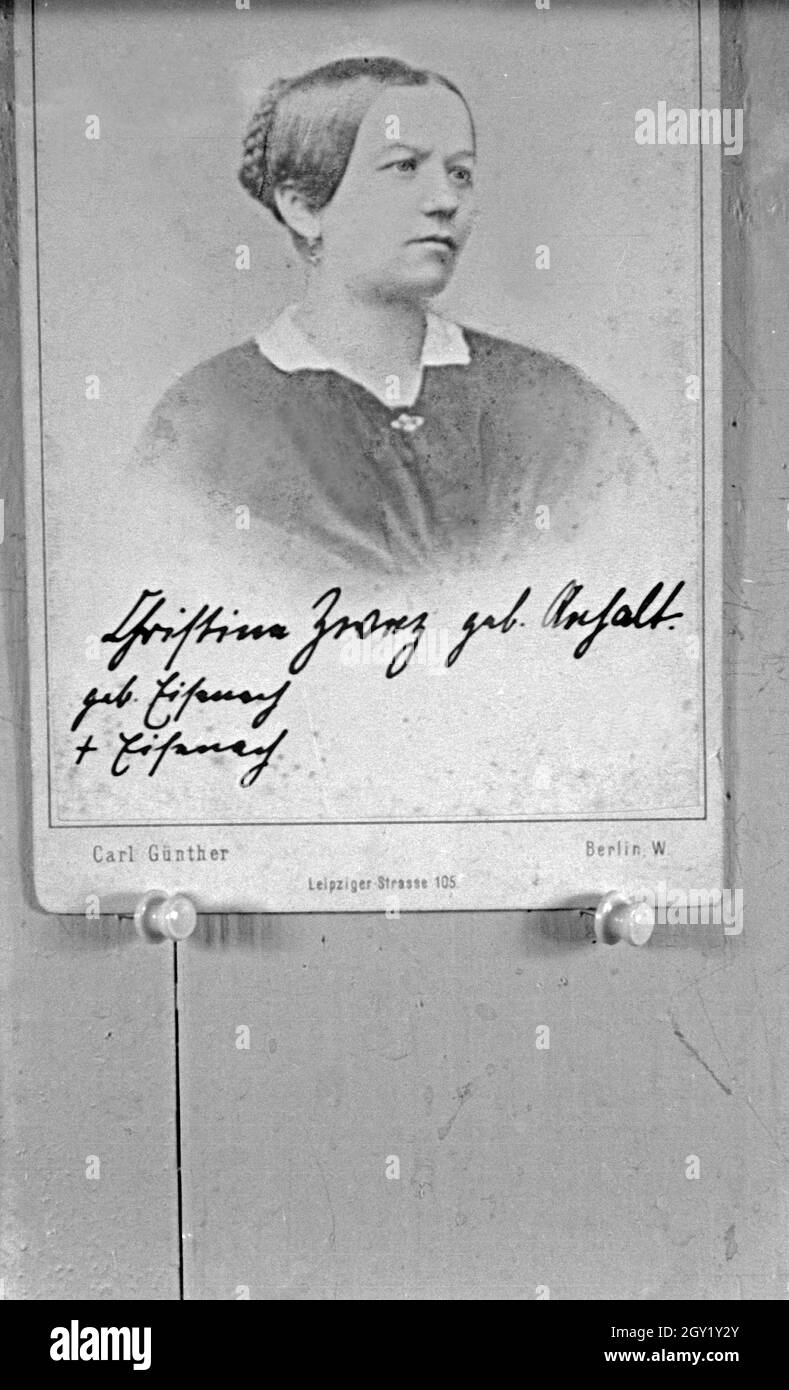 Christina Zwez geb. Anhalt.
geb. Eisenach
+ Eisenach
Carl Günther
Berlin, W.
Leipziger-Strasse 105.
alamy
a
alamy
Image ID: 2GY1Y2Y
www.alamy.com